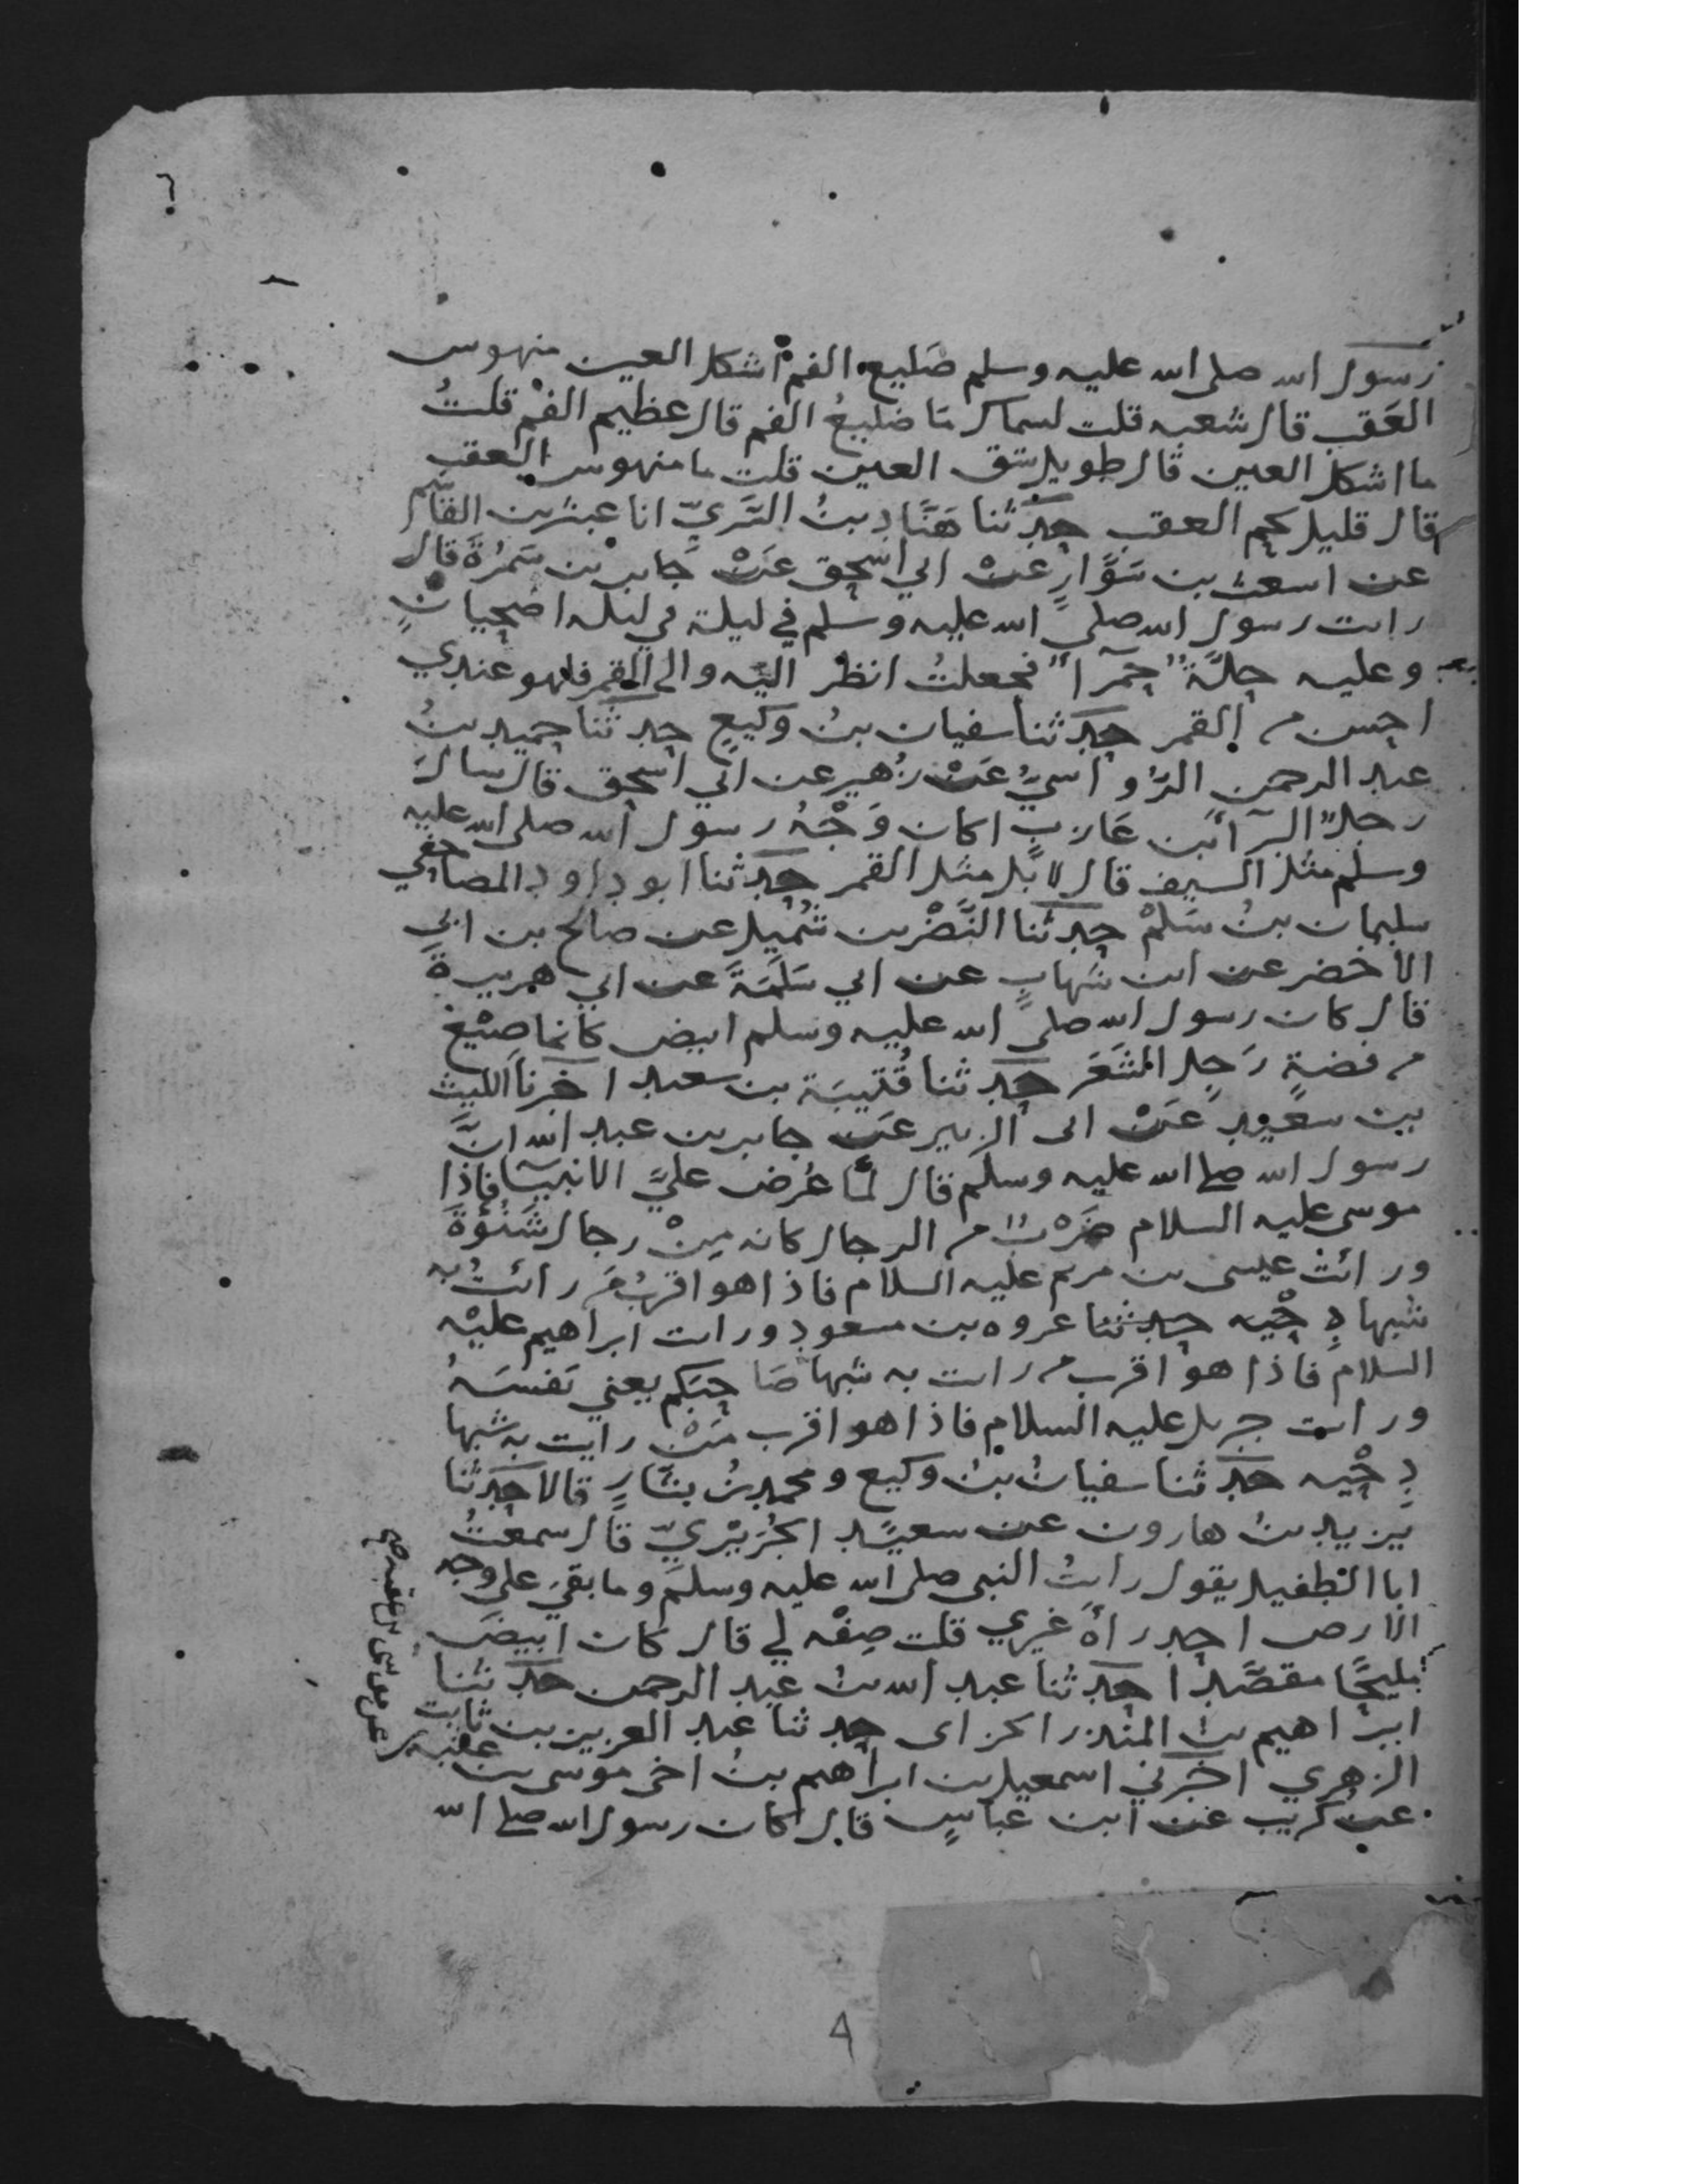 رسول الله صلى الله عليه وسلم ضَليع الفم اشكل العين منهوس
العَقب قال شعبه قلت لسماك مَا ضليعُ الفم قال عظيم الفم قلتُ
ما اشكل العين قال طويل شق العين قلت ما منهوس العقب
قال قليل لحم العقب حدثنا هَنَّاد بنُ السَّريّ انا عبثر بن القاسم
عن اشعث بن سَوَّارٍ عنْ ابي اسحق عَنْ جَابر بن سَمُرَةَ قال
رايت رسول الله صلى الله عليه وسلم في ليلة في ليله اضحيانٍ
وعليه حلَّةٌ حمرآ فجعلتُ انظر اليْه والى القمر فلهو عندي
احسن من القمر حدثنا سفيان بنُ وكيعٍ حدثنا حميد بنُ
عبد الرحمن الرُّواسيُّ عَنْ زُهير عن ابي اسحق قال سال
رجلٌ البرآ بن عَازبٍ اكان وَجْهُ رسول الله صلى الله عليه
وسلم مثل السيف قال لا بل مثل القمر حدثنا ابو داود المصاحفي
سليمان بنُ سَلمْ حدثنا النَّضْر بن شُميل عن صالح بن ابي
الاخضر عن ابن شهابٍ عن ابي سَلَمَةَ عن ابي هريرةَ
قال كان رسول الله صلى الله عليه وسلم ابيض كانما صيْغ
من فضةٍ رَجِل الشعَر حدثنا قُتيبَة بن سعيد اخبرنا الليث
بن سعد عَنْ ابى الزبير عَن جابر بن عبد الله انَّ
رسول الله صلى الله عليه وسلم قال لمّا عُرض عليَّ الانبيآ فإذا
موسى عليه السلام ضَرْبٌ من الرجال كانه مِنْ رجال شَنُوْةَ
ورائت عيسى بن مريم عليه السلام فاذا هو اقربُ مَن رائتُ به
شبها دِحْيه حدثنا عروه بن مسعود ورايت ابراهيم عليْه
السلام فاذا هو اقرب من رايت به شبها صَاحبَكم يعني نَفسَهُ
ورايت جبريل عليه السلام فاذا هو اقرب مَنْ رايت به شبها
دِحْيه حدثنا سفيانُ بْنُ وكيع ومحمد بنُ بشَّارٍ قالا حدثنا
يزيد بنُ هارون عن سعيد الجُرَيْريّ قال سمعتُ
ابا الطفيل يقول رايتُ النبي صلى الله عليه وسلم وما بقيَ على وجه
الارض احد رآهُ غيري قلت صِفْه لي قال كان ابيضَ
مليحًا مقصَّدا حدثنا عبد الله بنُ عبد الرحمن حدثنا
ابراهيم بن المنذر الحزامى حدثنا عبد العزيز بن ثابت
الزهري اخبرني اسمعيل بن ابراهيم بنُ اخى موسى بن عقبه
عن كريب عن ابن عباسٍ قال كان رسول الله صلى الله
عن موسى بن عقبه صح
4